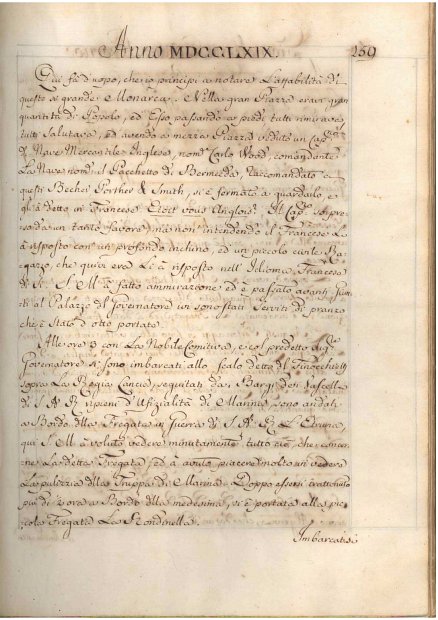 Anno MDCCLXIX. 259
Quì fà d'uopo, che io principi a notare L'affabilità di
questo sì grande Monarca. Nella gran Piazza eravi gran
quantità di Popolo, ed Esso passando a piedi tutti rimirava,
tutti Salutava, ed avendo a mezza Piazza veduto un Cap.º
di Nave Mercantile Inglese, nom.º Carlo Wood, comandante
La Nave nom.ª il Pacchetto di Bermuda, Raccomandato a
questi Becher Porther & Smith, si è fermato a guardarlo, e
gl'à detto in Francese Etiet vous Anglois? Il Cap.º
un tanto favore) ma non intendendo il Francese Le
à risposto con un profondo inchino, ed un piccolo civile Ra-
gazzo, che quivi era Li à risposto nell'Idioma Francese
di Sì. S. M. à fatto ammirazione ed è passato avanti,
al Palazzo del Governatore vi sono stati Serviti di pranzo
che è stato d'otto portate.
Alle ore 3 con La Nobile Comitiva, e col predetto Sig.re
Governatore si sono imbarcati allo scalo detto del Finocchietti
sopra La Regia Lancia, seguitati da i Bargi dei Vascelli
di S. A. R. ripieni di Ufizialità di Marina, sono andati
a Bordo della Fregata in Guerra di S. A. R. L'Etruria,
quì S. M. à voluto vedere minutamente tutto ciò, che concer-
ne La detta Fregata, ed à avuto piacere molto in vedere
La pulizia della Truppa di Marina. Doppo essersi trattenuto
più di 2 ore a Bordo della medesima, si è portata alla pic-
cola Fregata La Rondinella.
Imbarcatisi